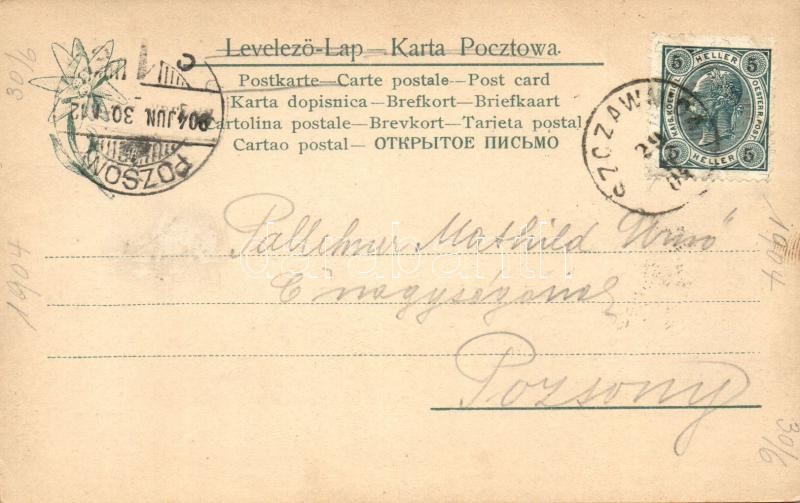 Levelező-Lap — Karta Pocztowa.
Postkarte — Carte postale — Post card
Karta dopisnica — Brefkort — Briefkaart
Cartolina postale — Brevkort — Tarjeta postal
Cartao postal — ОТКРЫТОЕ ПИСЬМО
5 HELLER 5
KAIS. KOENIGL. OESTERR. POST
5 HELLER 5
SZCZAWN
29
04
904 JUN. 30
POZSONY
Mathild Úrnő
Ő nagyságának
Pozsony
30/6
1904
1904
30/6
darabanth